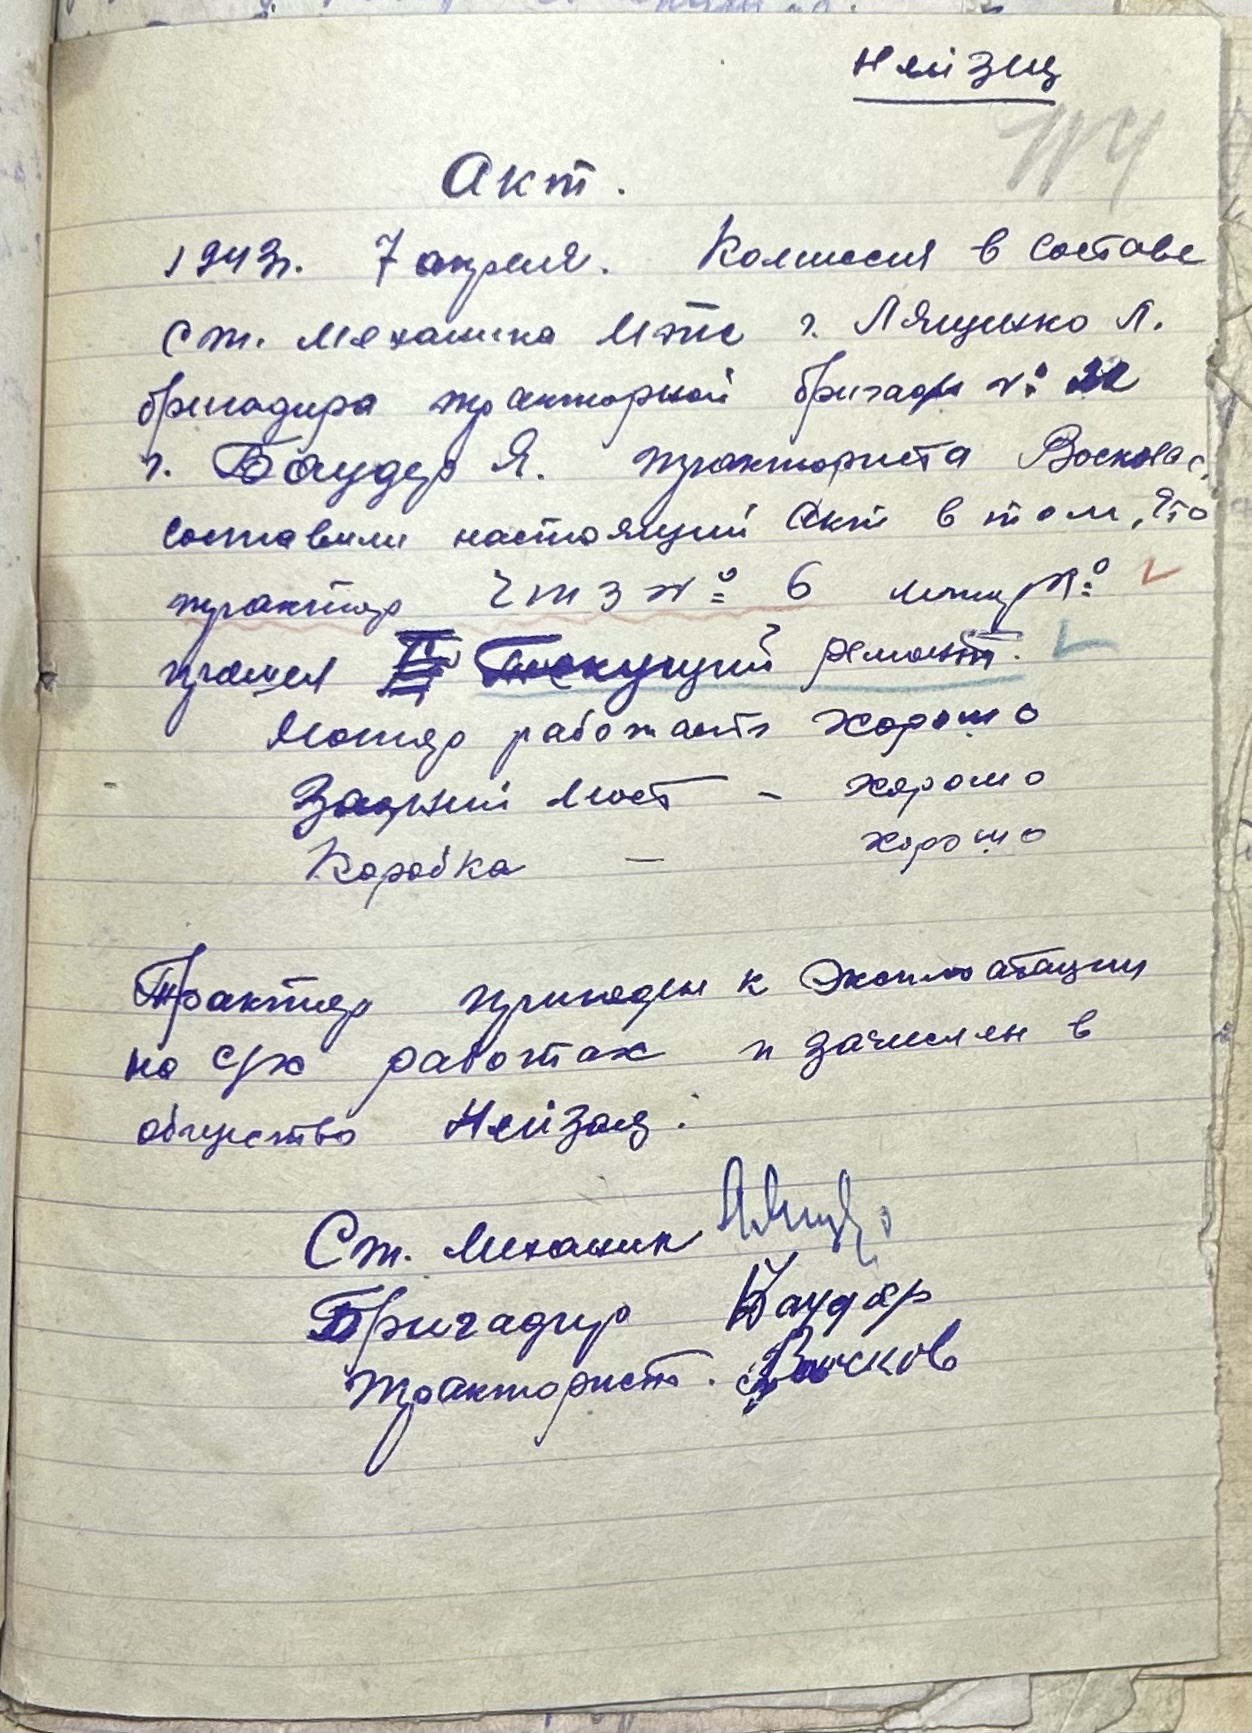 Нейзац
Акт.
1943г. 7 апреля. Комиссия в составе
ст. механика Мтс г. Лященко Л.
бригадира тракторной бригады №
г. Баудер Я. тракториста Воскова С.
составили настоящий акт в том, что
трактор ЧТЗ № 6 мотор №
прошел текущий ремонт.
Мотор работает хорошо
Задний мост - хорошо
Коробка — хорошо
Трактор пригоден к эксплоатации
на с/х работах и зачислен в
общество Нейзац.
Ст. механик
Бригадир Баудер
Тракторист. Восков